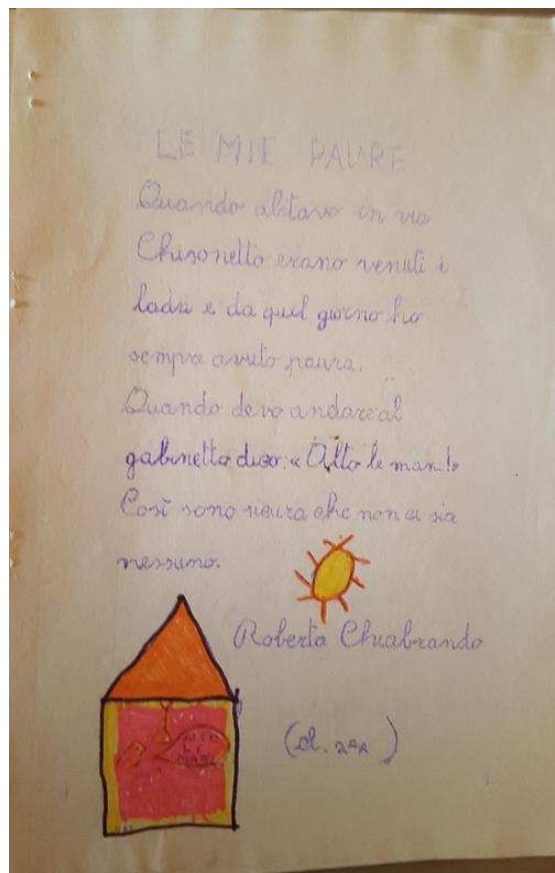 LE MIE PAURE
Quando abitavo in via
Chisonetto erano venuti i
ladri e da quel giorno ho
sempre avuto paura.
Quando devo andare al
gabinetto dico: «Alto le mani!»
Così sono sicura che non ci sia
nessuno.
Roberta Chiabrando
ALTO
LE
MANI
(cl. 2ªA)